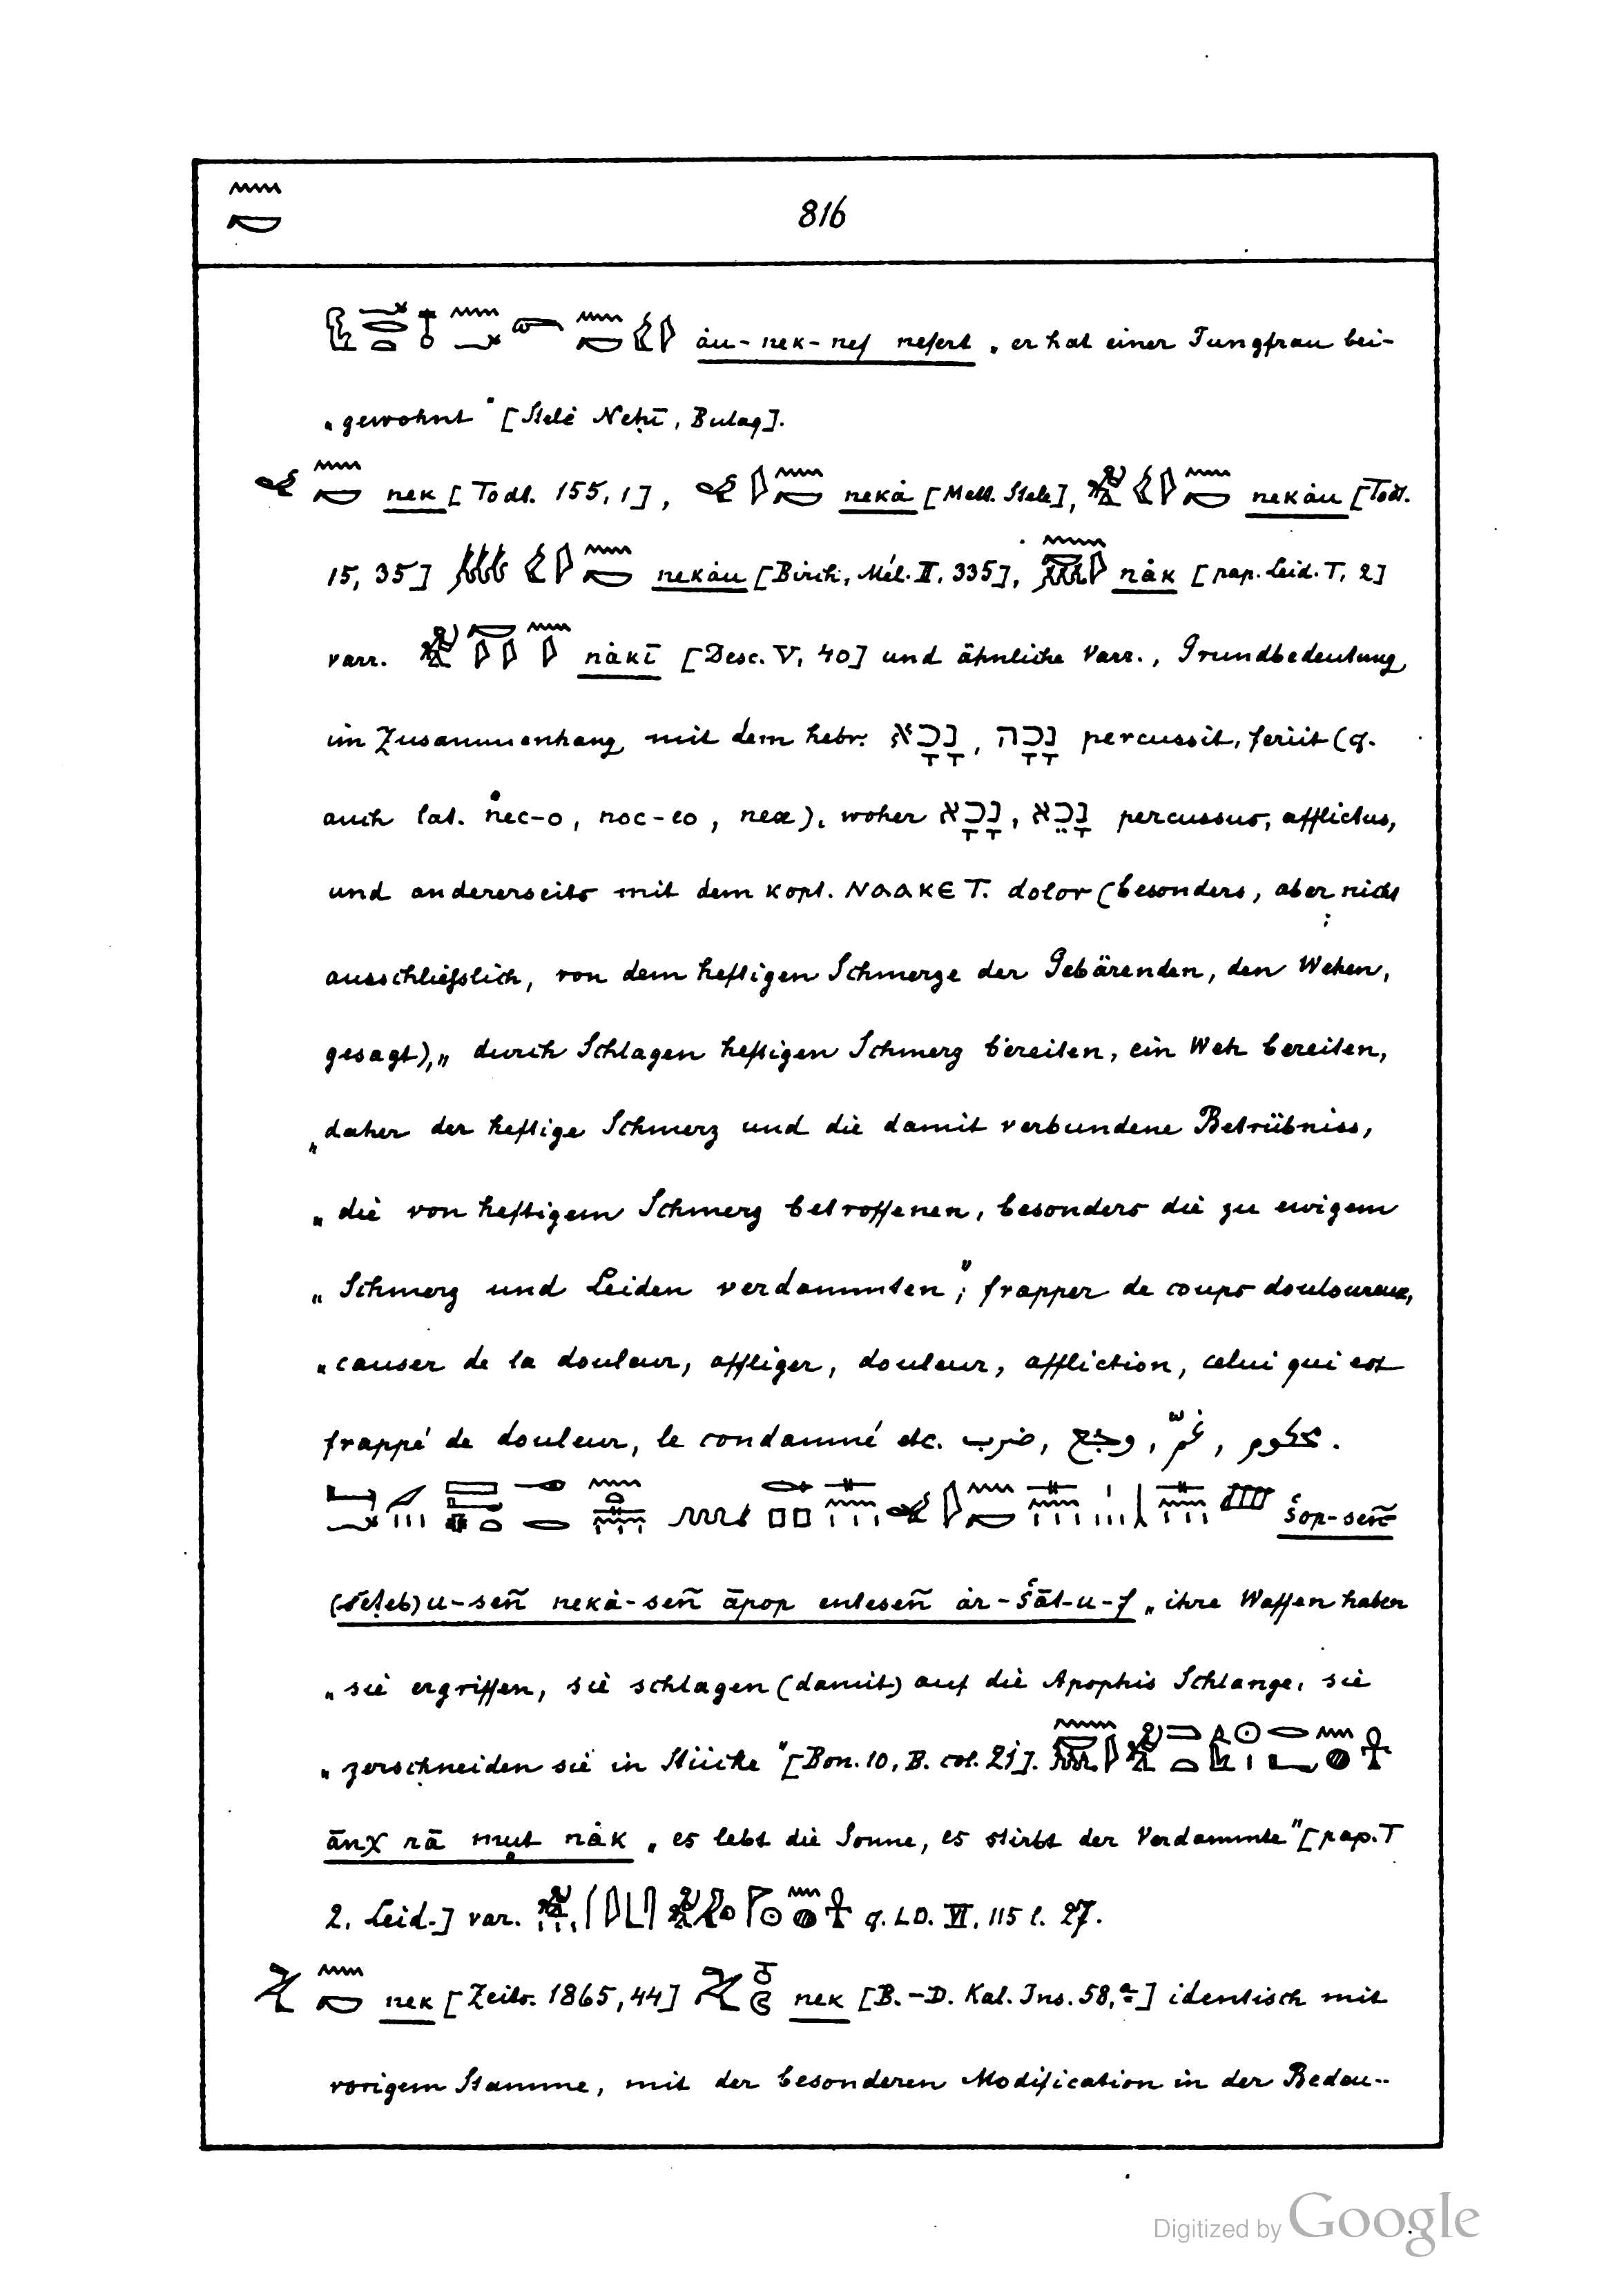 816
ȧu-nek-nef nefert „er hat einer Jungfrau bei-
„gewohnt" [Stele Neḥī, Bulaq].
nek [Todt. 155, 1], nekȧ [Mett. Stele], nekȧu [Todt.
15, 35] nekȧu [Birch, Mél. II, 335], nȧk [pap. Leid. T, 2]
varr. nȧkī [Desc. V, 40] und ähnliche Varr., Grundbedeutung
im Zusammenhang mit dem hebr. נָכָא, נָכָה percussit, feriit (cf.
auch lat. nec-o, noc-eo, nex), woher נָכָא, נָכֵא percussus, afflictus,
und andererseits mit dem kopt. ⲚⲀⲀⲔⲈ T. dolor (besonders, aber nicht
ausschließlich, von dem heftigen Schmerze der Gebärenden, den Wehen,
gesagt), „durch Schlagen heftigen Schmerz bereiten, ein Weh bereiten,
„daher der heftige Schmerz und die damit verbundene Betrübniss,
„die von heftigem Schmerz betroffenen, besonders die zu ewigem
„Schmerz und Leiden verdammten"; frapper de coups douloureux,
„causer de la douleur, affliger, douleur, affliction, celui qui est
frappé de douleur, le condamné etc. ضرب, وجع, غمّ, محكوم.
šop-señ
(šeteb)u-señ nekȧ-señ āpop entesen̄ ȧr-šāt-u-f „ihre Waffen haben
„sie ergriffen, sie schlagen (damit) auf die Apophis Schlange, sie
„zerschneiden sie in Stücke" [Bon. 10, B. col. 21].
ānχ rā mut nȧk „es lebt die Sonne, es stirbt der Verdammte" [pap. T
2. Leid.] var. cf. LD. VI, 115 l. 27.
nek [Zeits. 1865, 44] nek [B.-D. Kal. Ins. 58, ] identisch mit
vorigem Stamme, mit der besonderen Modification in der Bedeu-
Digitized by Google